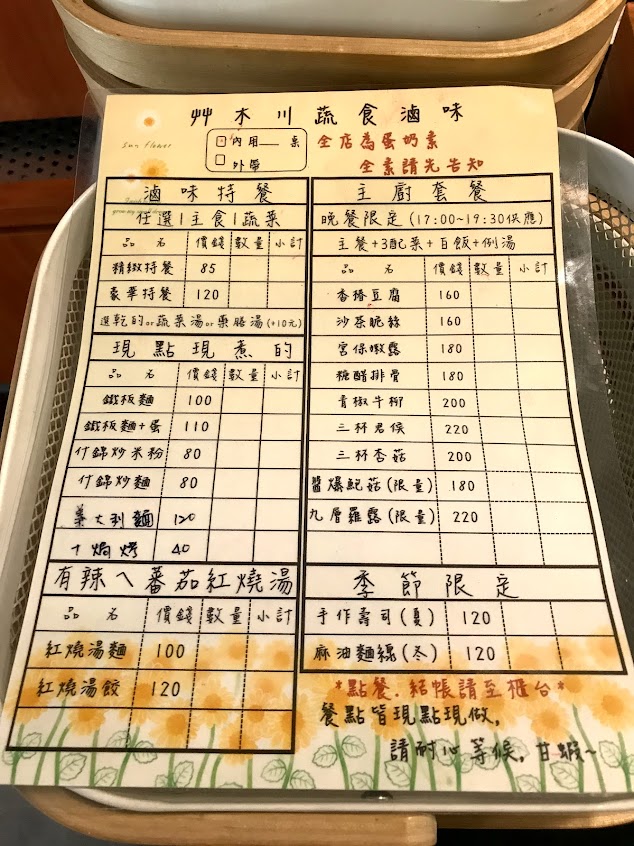 艸木川蔬食滷味
Sun flower
內用___桌
外帶
全店為蛋奶素
全素請先告知
滷味特餐
任選1主食1蔬菜
品名 價錢 數量 小計
精緻特餐 85
豪華特餐 120
選乾的or蔬菜湯or藥膳湯(+10元)
現點現煮的
品名 價錢 數量 小計
鐵板麵 100
鐵板麵+蛋 110
什錦炒米粉 80
什錦炒麵 80
義大利麵 120
+焗烤 40
有辣ㄟ蕃茄紅燒湯
品名 價錢 數量 小計
紅燒湯麵 100
紅燒湯餃 120
主廚套餐
晚餐限定(17:00~19:30供應)
主餐+3配菜+白飯+例湯
品名 價錢 數量 小計
香椿豆腐 160
沙茶脆絲 160
宮保嫩露 180
糖醋排骨 180
青椒牛柳 200
三杯君侯 220
三杯杏菇 200
醬爆鮑菇(限量) 180
九層羅露(限量) 220
季節限定
手作壽司(夏) 120
麻油麵線(冬) 120
*點餐.結帳請至櫃台*
餐點皆現點現做,
請耐心等候,甘蝦~